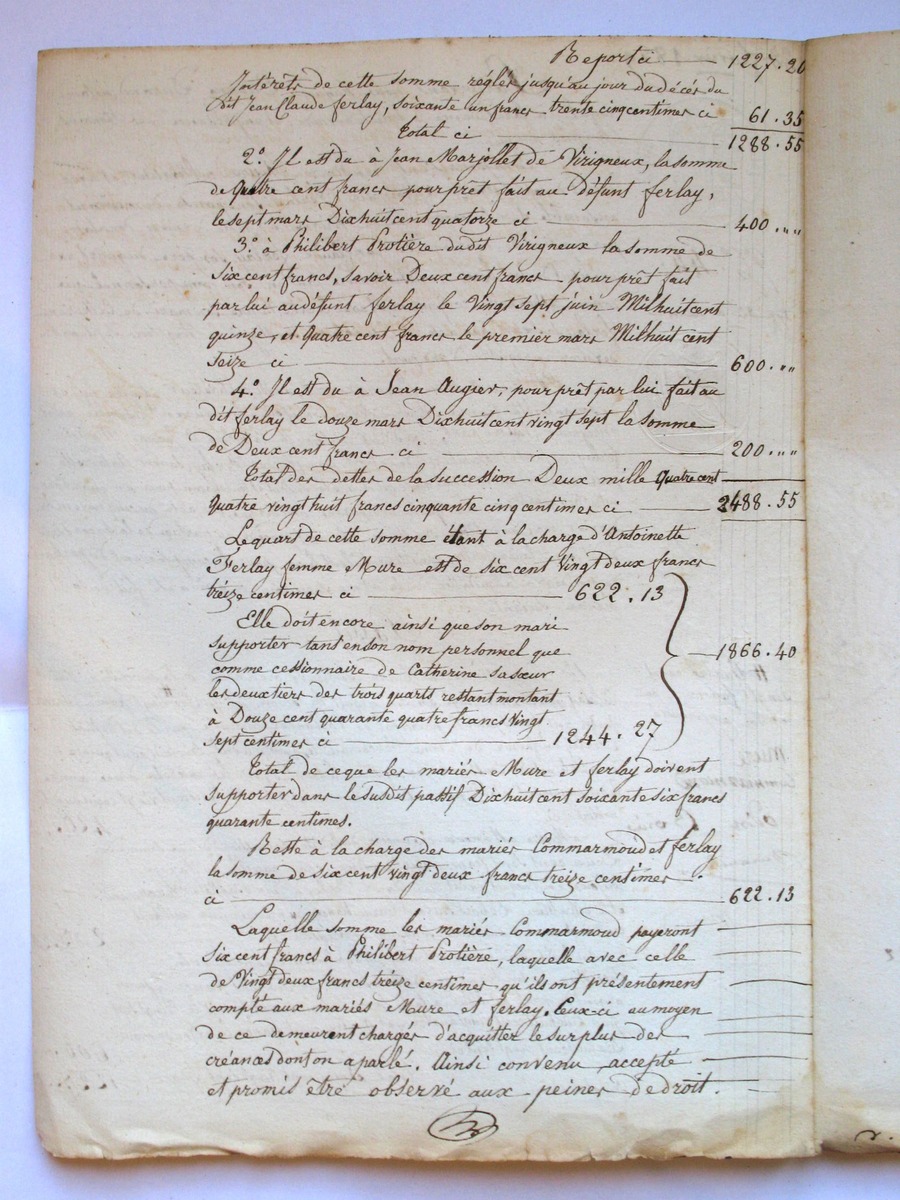 Report ci 1227.20
Intérêts de cette somme réglés jusqu'au jour du décès du
dit Jean Claude ferlay, soixante un francs trente cinq centimes ci 61.35
Total ci 1288.55
2.º Il est du à Jean Marjollet de Virigneux, la somme
de Quatre cent francs pour prêt fait au défunt ferlay,
le sept mars Dix huit cent quatorze ci 400.""
3.º à Philibert Protière dudit Virigneux la somme de
six cent francs, savoir Deux cent francs pour prêt fait
par lui au défunt ferlay le Vingt sept juin Mil huit cent
quinze, et Quatre cent francs le premier mars Mil huit cent
seize ci 600.""
4.º Il est du à Jean Augier, pour prêt par lui fait au
dit ferlay le douze mars Dix huit cent vingt sept la somme
de Deux cent francs ci 200.""
Total des dettes de la succession Deux mille Quatre cent
Quatre vingt huit francs cinquante cinq centimes ci 2488.55
Le quart de cette somme étant à la charge d'Antoinette
Ferlay femme Mure est de six cent vingt deux francs
treize centimes ci 622.13
Elle doit encore ainsi que son mari
supporter tant en son nom personnel que
comme cessionnaire de Catherine sa sœur
les deux tiers des trois quarts restant montant
à Douze cent quarante quatre francs vingt
sept centimes ci 1244.27
1866.40
Total de ce que les mariés Mure et ferlay doivent
supporter dans le susdit passif Dix huit cent soixante six francs
quarante centimes.
Reste à la charge des mariés Commarmoud et ferlay
la somme de six cent vingt deux francs treize centimes
ci 622.13
Laquelle somme les mariés Commarmoud payeront
six cent francs à Philibert Protière, laquelle avec celle
de Vingt deux francs treize centimes qu'ils ont présentement
compté aux mariés Mure et ferlay. Ceux-ci au moyen
de ce demeurent chargés d'acquitter le surplus des
créances dont on a parlé. Ainsi convenu, accepté
et promis être observé aux peines de droit.